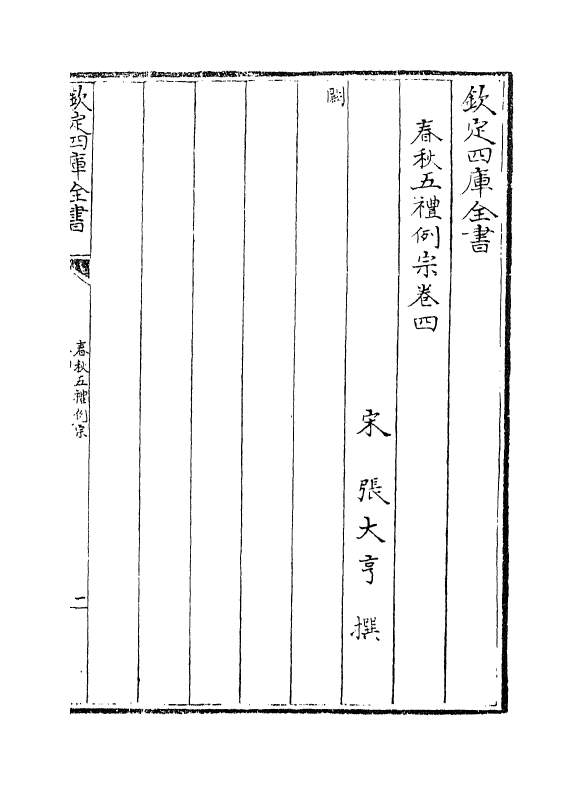 欽定四庫全書
春秋五禮例宗卷四
宋 張大亨 撰
闕
欽定四庫全書
春秋五禮例宗
二